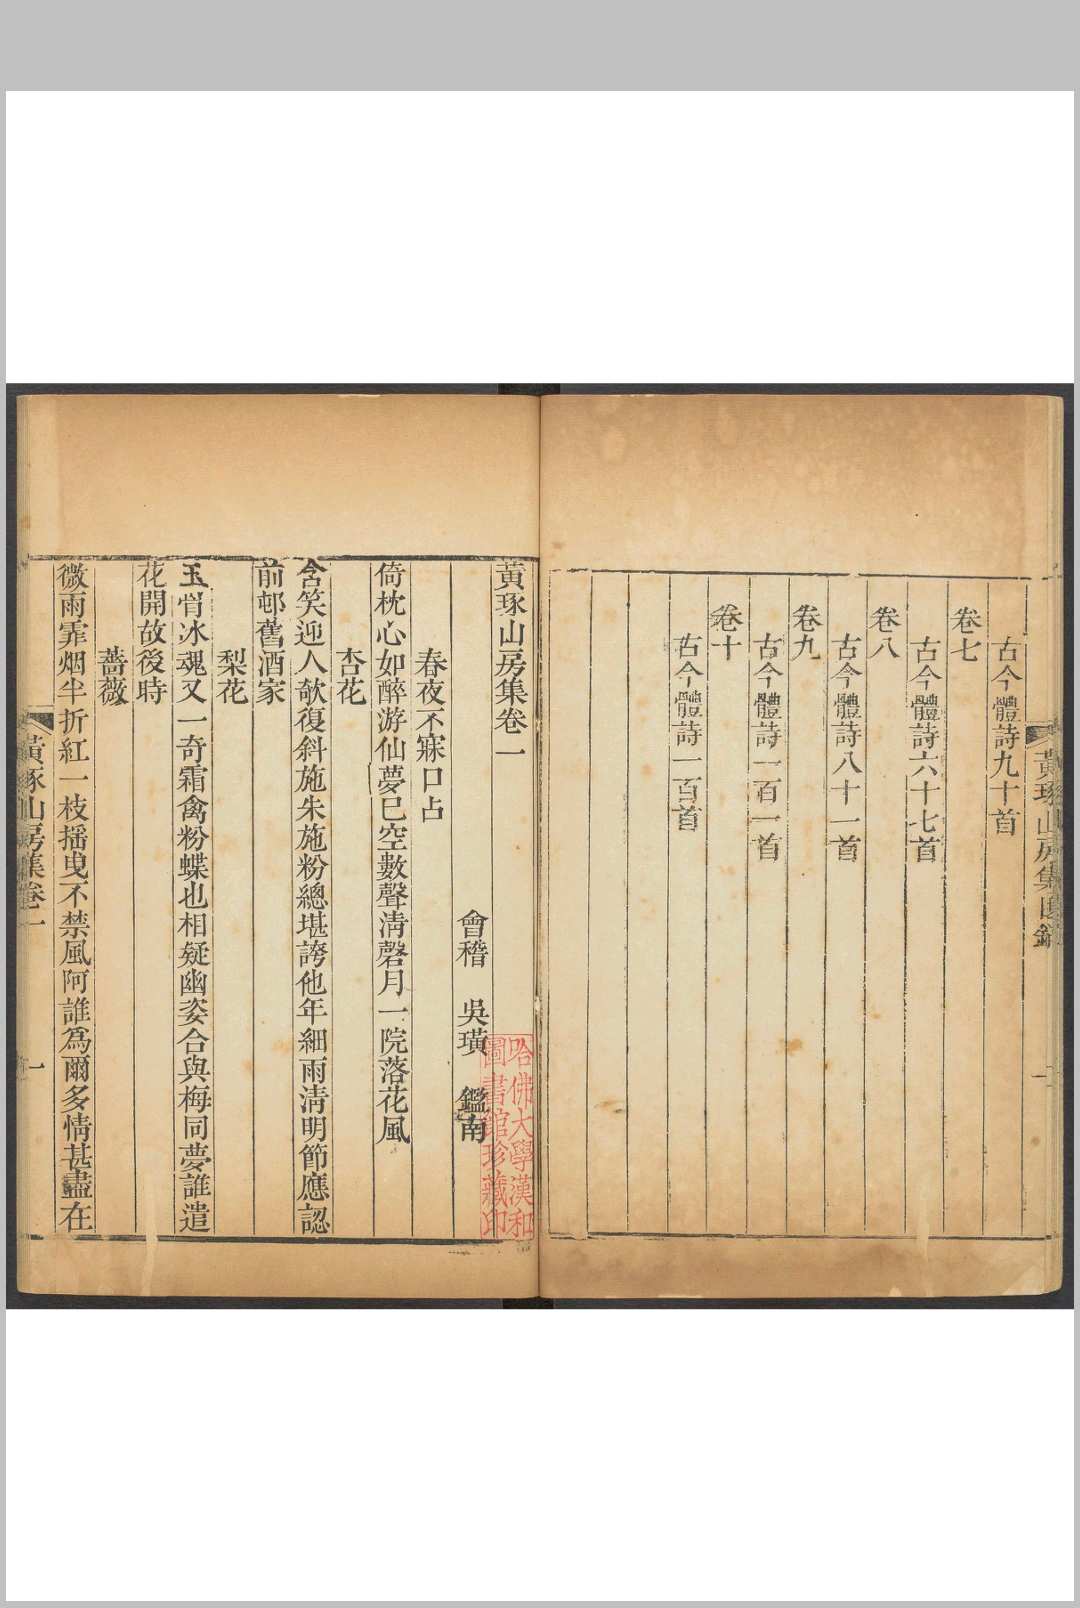 古今體詩九十首
卷七
古今體詩六十七首
卷八
古今體詩八十一首
卷九
古今體詩一百一首
卷十
古今體詩一百首
黃琢山房集卷一
會稽 吳璜 鑑南
春夜不寐口占
倚枕心如醉游仙夢已空數聲淸磬月一院落花風
杏花
含笑迎人欹復斜施朱施粉總堪誇他年細雨淸明節應認
前邨舊酒家
梨花
玉骨冰魂又一奇霜禽粉蝶也相疑幽姿合與梅同夢誰遣
花開故後時
薔薇
微雨霏烟半折紅一枝搖曵不禁風阿誰爲爾多情甚盡在
黃琢山房集卷一
一
哈佛大學漢和
圖書館珍藏印